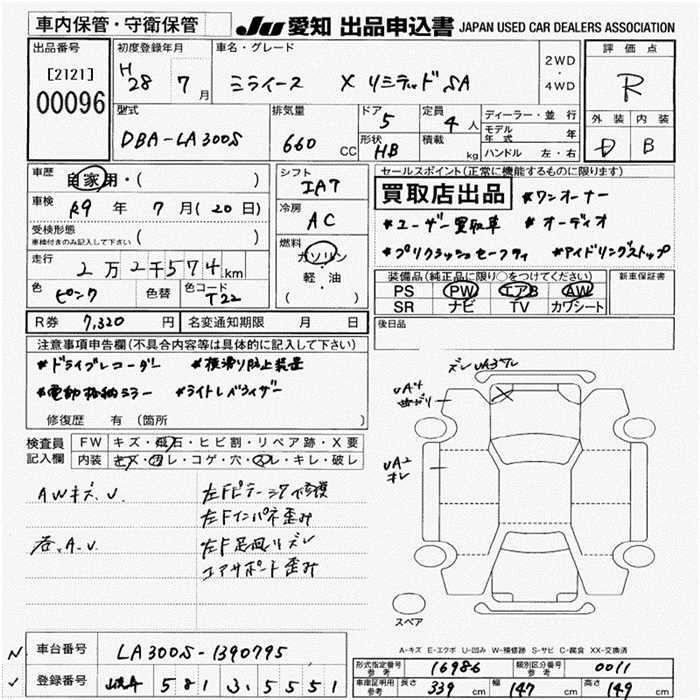 車内保管・守衛保管
JU 愛知 出品申込書 JAPAN USED CAR DEALERS ASSOCIATION
出品番号
[2121]
00096
初度登録年月
H28 7月
車名・グレード
ミライース X リミテッド SA
2WD
・
4WD
評価点
R
外装 内装
D B
型式
DBA-LA300S
排気量
660 CC
ドア
5
定員
4人
形状
HB
積載
kg
ディーラー・並行
モデル年式 年
ハンドル 左・右
車歴
自家用・( )
車検
R9年 7月(20日)
受検形態
車検付きのみ記入して下さい ( )
走行
2万2千574km
色
ピンク
色替
色コード
T22
シフト
IA7
冷房
AC
燃料
ガソリン
軽・油
( )
セールスポイント(正常に機能するものに限ります)
買取店出品 *ワンオーナー
*ユーザー買取車 *オーディオ
*プリクラッシュセーフティ *アイドリングストップ
装備品(純正品に限り○をつけてください)
PS PW エアB AW
SR ナビ TV カワシート
新車保証書
後日品
R券 7,320円
名変通知期限 月 日
注意事項申告欄(不具合内容等は具体的に記入して下さい)
*ドライブレコーダー *横滑り防止装置
*電動格納ミラー *ライトレベライザー
修復歴 有(箇所 )
検査員記入欄
FW キズ・飛石・ヒビ割・リペア跡・X要
内装 キズ・汚レ・コゲ・穴・スレ・キレ・破レ
AWキズ.U.
左Fピラーシワ修復
左Fインパネ歪み
左F足回りズレ
コアサポート歪み
ズレ UA3ワレ
UA4
UA2
スペア
A-キズ E-エクボ U-凹み W-補修跡 S-サビ C-腐食 XX-交換済
車台番号 LA300S-1390795
登録番号 岐阜 581 3 5551
形式指定番号 参考 16986
類別区分番号 参考 0011
車庫証明用 参考 長さ 339 cm 幅 147 cm 高さ 149 cm